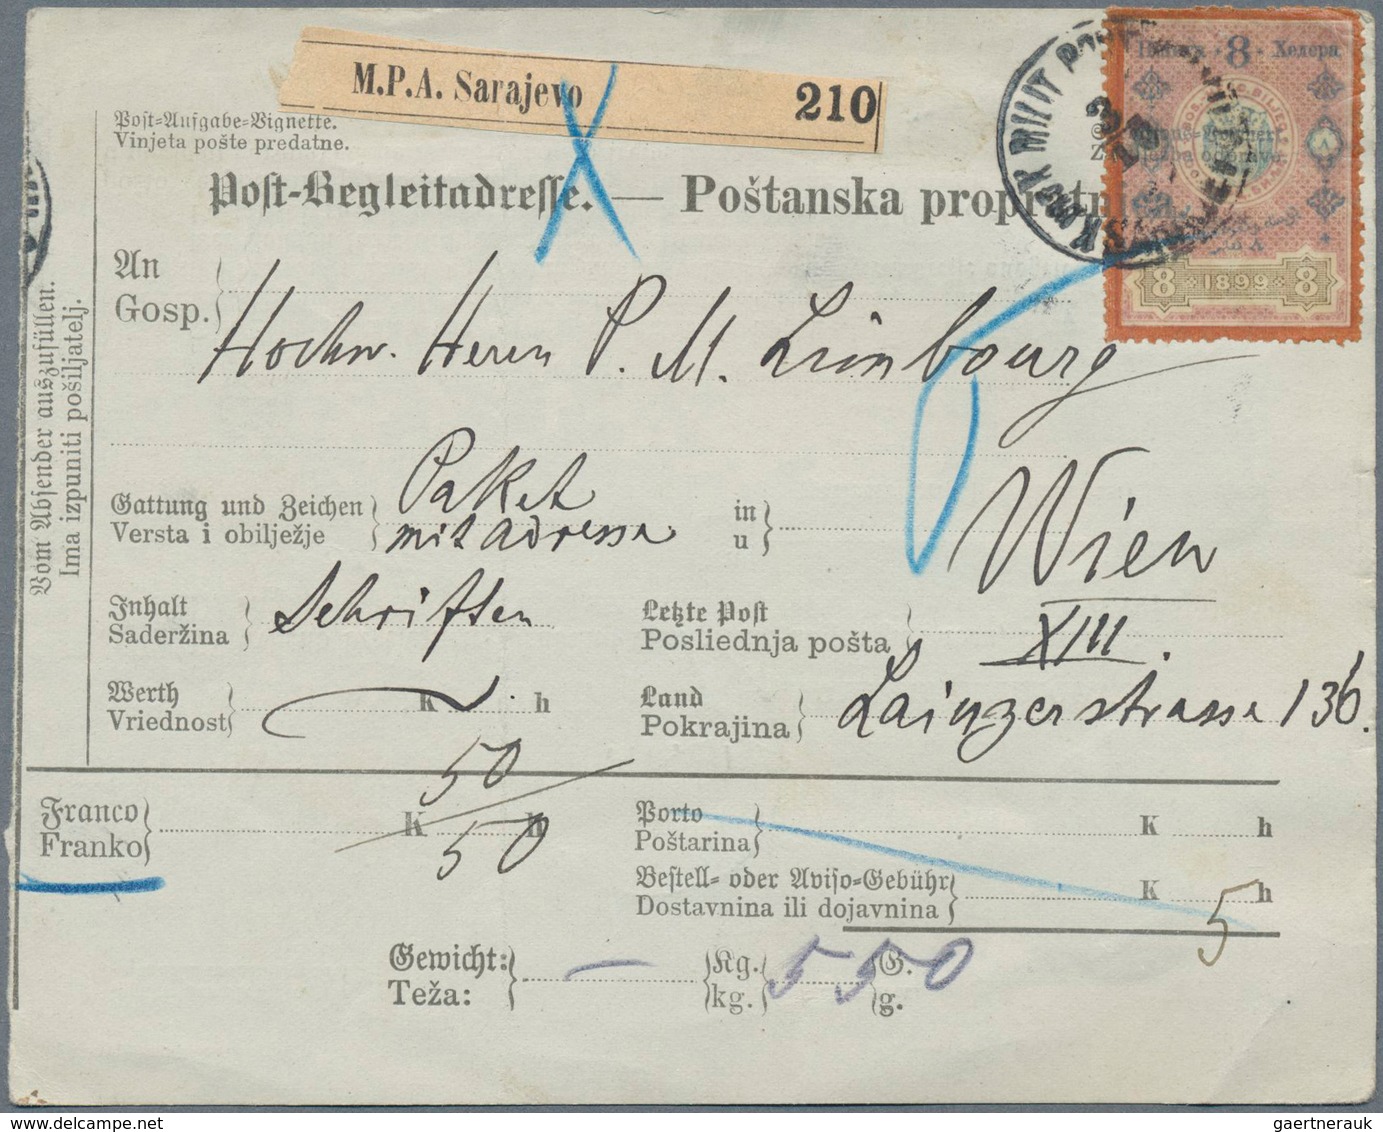 M.P.A. Sarajevo 210
Post-Aufgabe-Vignette.
Vinjeta pošte predatne.
Post-Begleitadresse. — Poštanska
8 Хелера
8 1899 8
An
Gosp.
Hochw. Herrn P. M. Limbourg
Gattung und Zeichen
Versta i obilježje
Paket
mit adresse
in
u
Wien
Inhalt
Saderžina
Schriften
Letzte Post
Posliednja pošta
XIII.
Werth
Vriednost
K h
Land
Pokrajina
Lainzerstrasse 136.
50
Franco
Franko
K h
50
Porto
Poštarina
K h
Bestell- oder Aviso-Gebühr
Dostavnina ili dojavnina
K 5 h
Gewicht:
Teža:
— Kg.
kg.
550 G.
g.
Vom Absender auszufüllen.
Ima izpuniti pošiljatelj.
gaertnerauk